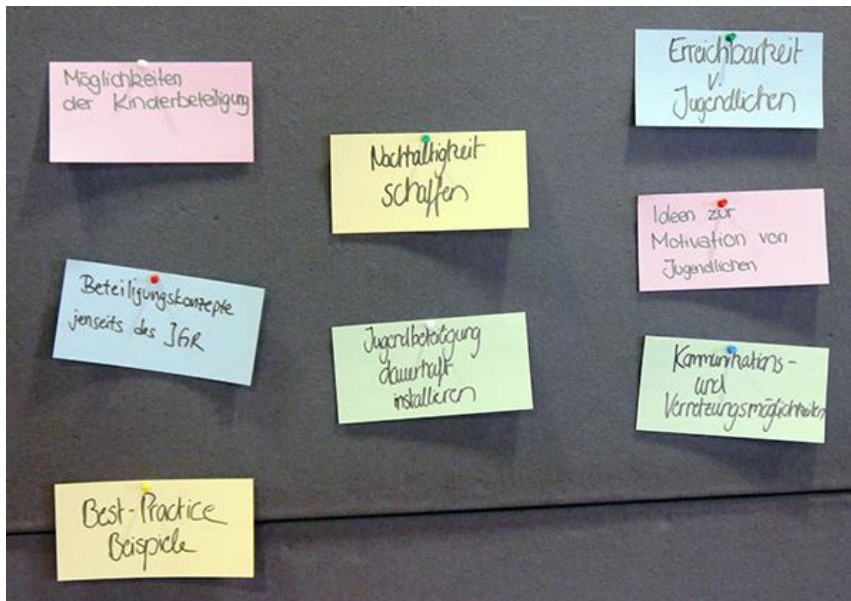 Möglichkeiten
der Kinderbeteiligung
Beteiligungskonzepte
jenseits des JGR
Best-Practice
Beispiele
Nachhaltigkeit
schaffen
Jugendbeteiligung
dauerhaft
installieren
Erreichbarkeit
v.
Jugendlichen
Ideen zur
Motivation von
Jugendlichen
Kommunikations-
und
Vernetzungsmöglichkeiten